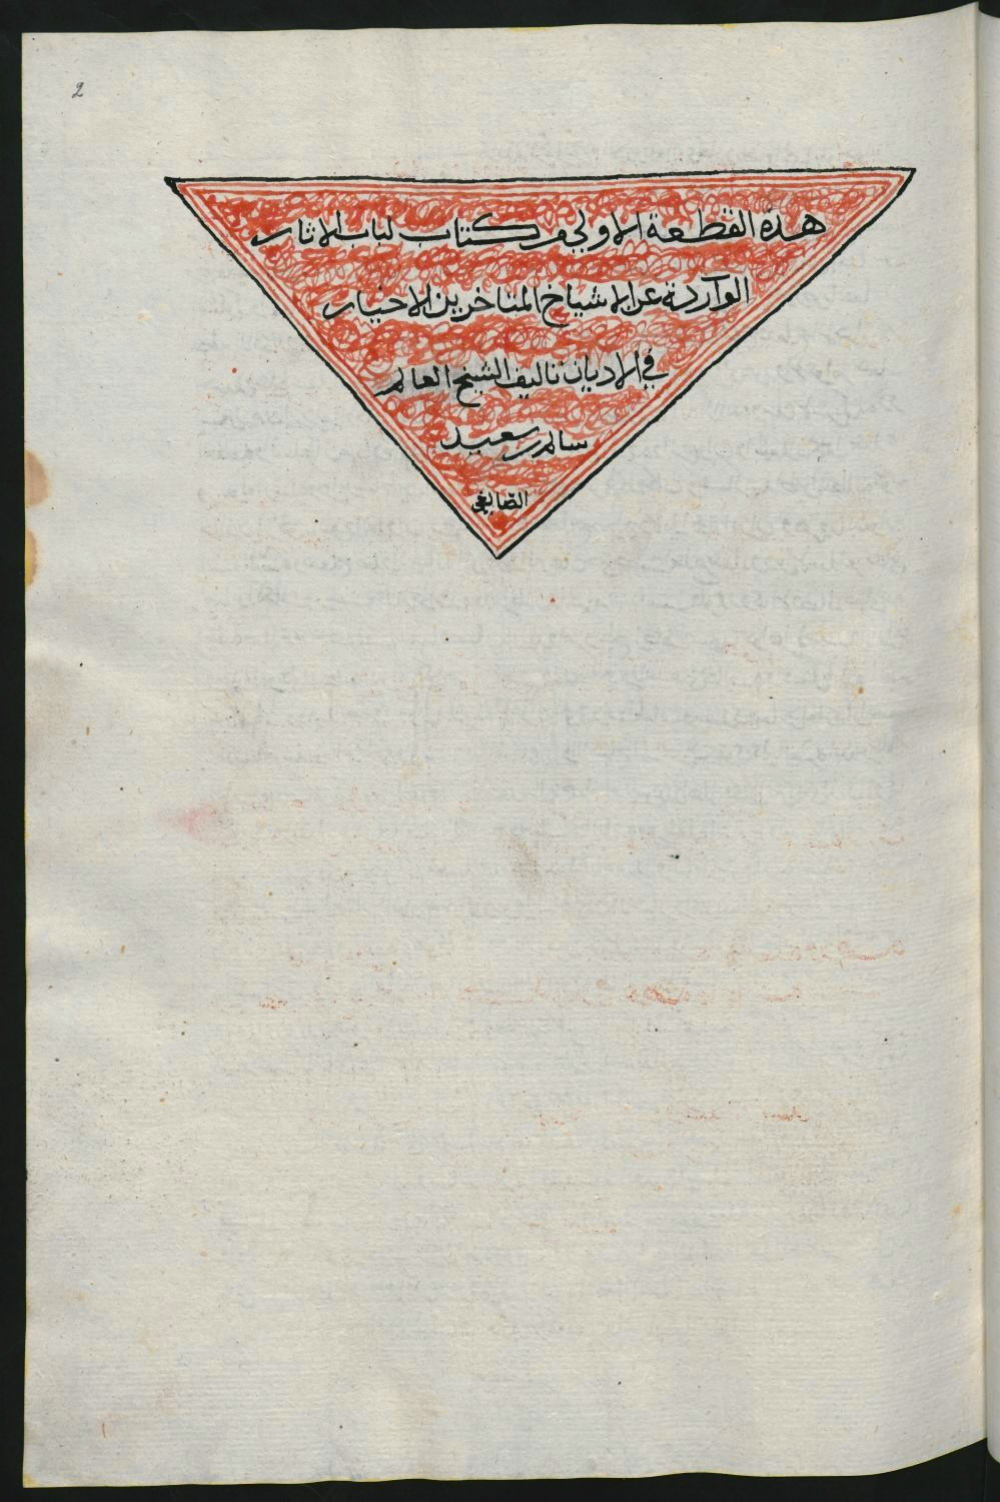 2
هذه القطعة الاولى من كتاب لباب الاثار
الواردة عن الاشياخ المتاخرين الاخيار
في الاديان تاليف الشيخ العالم
سالم بن سعيد
الصايغي